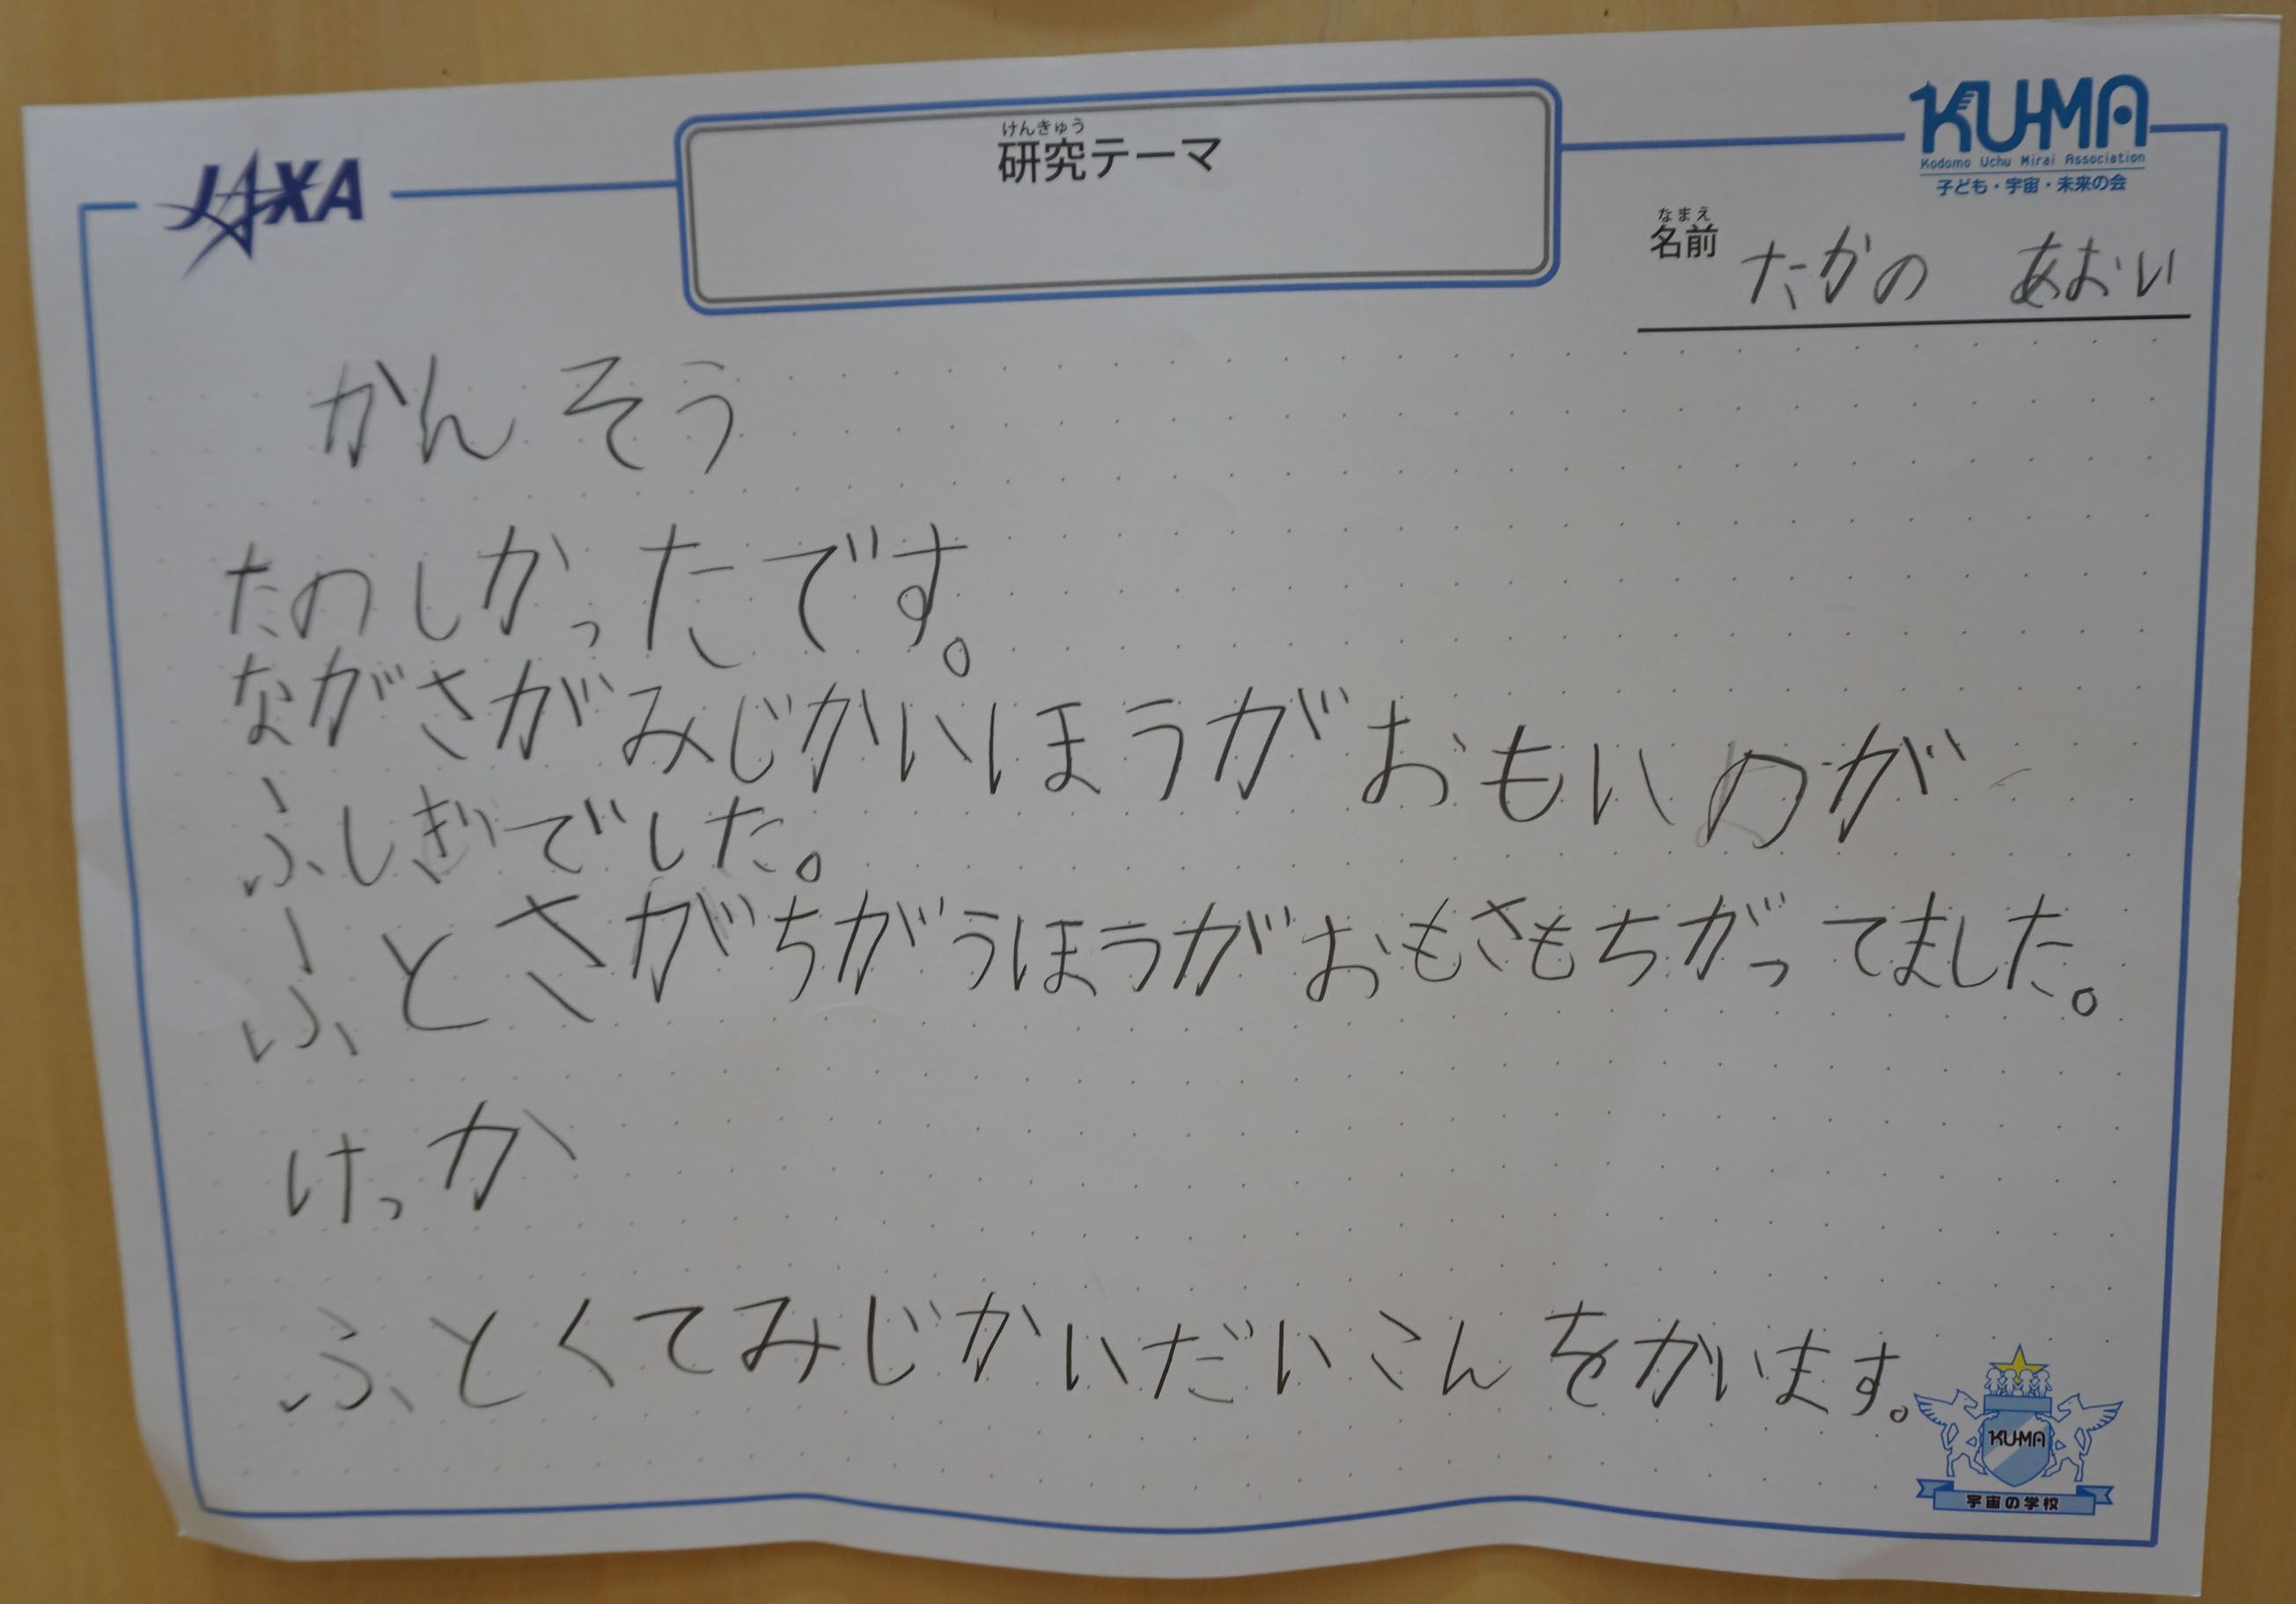 JAXA
けんきゅう
研究テーマ
KU-MA
Kodomo Uchu Mirai Association
子ども・宇宙・未来の会
なまえ
名前 たかの あおい
かんそう
たのしかったです。
ながさがみじかいほうがおもいのが
ふしぎでした。
ふとさがちがうほうがおもさもちがってました。
けっか
ふとくてみじかいだいこんをかいます。
KU-MA
宇宙の学校